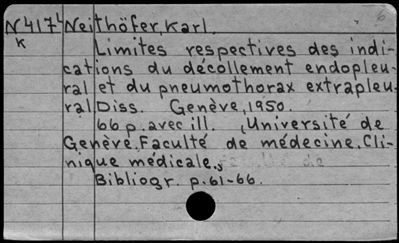 N417L Neithöfer, Karl.
K
Limites respectives des indi-
cations du décollement endopleu-
ral et du pneumothorax extrapleu-
ral Diss. Genève, 1950.
66 p. avec ill. (Université de
Genève. Faculté de médecine. Cli-
nique médicale.,
Bibliogr. p. 61-66.